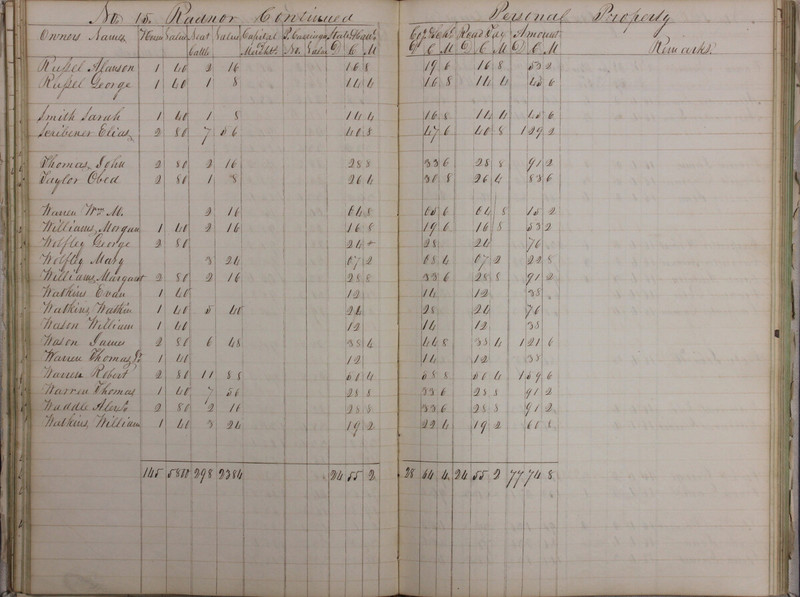 No 15. Radnor Continued Personal Property
Owners Names Horses Value Neat Cattle Value Capital Value State D C M D C M Road Tax D C M Amount D C M Remarks
Russel Alanson 1 40 2 16 16 8 19 6 16 8 53 2
Russel George 1 40 1 8 14 4 16 8 14 4 45 6
Smith Sarah 1 40 1 8 14 4 16 8 14 4 45 6
Scribener Elias 2 80 7 56 40 8 47 6 40 8 1 29 2
Thomas John 2 80 2 16 28 8 33 6 28 8 91 2
Taylor Obed 2 80 1 8 26 4 30 8 26 4 83 6
Warren Wm M. 2 16 04 8 05 6 04 8 15 2
Williams Morgan 1 40 2 16 16 8 19 6 16 8 53 2
Wolfley George 2 80 24 28 24 76
Wolfley Mary 3 24 07 2 08 4 07 2 22 8
Williams Margaret 2 80 2 16 28 8 33 6 28 8 91 2
Watkins Evan 1 40 12 14 12 38
Watkins Watkin 1 40 5 40 24 28 24 76
Wason William 1 40 12 14 12 38
Wason James 2 80 6 48 38 4 44 8 38 4 1 21 6
Warren Thomas 1 40 12 14 12 38
Warren Robert 2 80 11 88 50 4 58 8 50 4 1 59 6
Warren Thomas 1 40 7 56 28 8 33 6 28 8 91 2
Waddle Alexr 2 80 2 16 28 8 33 6 28 8 91 2
Watkins William 1 40 3 24 19 2 22 4 19 2 60 8
145 298 2384 24 55 2 28 64 4 24 55 2 77 74 8